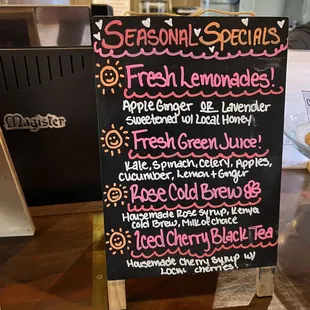 Seasonal Specials
Fresh Lemonades!
Apple Ginger OR Lavender
sweetened w/ Local Honey
Fresh Green Juice!
Kale, Spinach, Celery, Apples,
cucumber, Lemon + Ginger
Rose Cold Brew
Housemade Rose syrup, Kenya
cold Brew, Milk of choice
Iced Cherry Black Tea
Housemade cherry syrup w/
Local cherries!
Magister